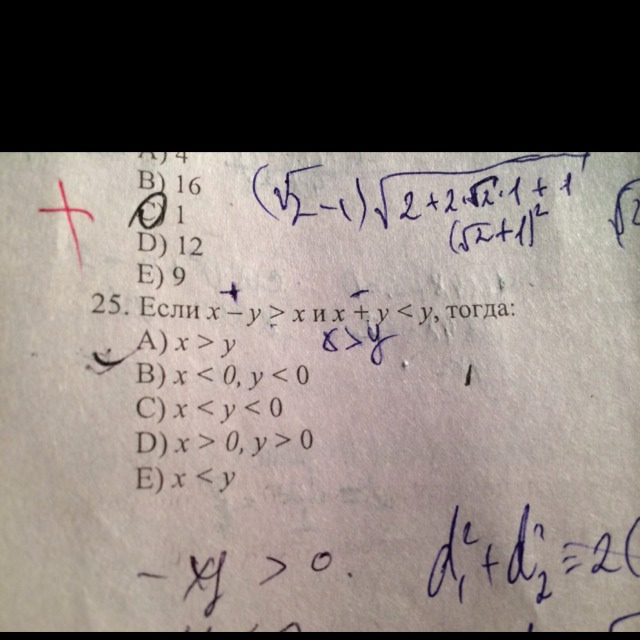 B) 16
C) 1
D) 12
E) 9
(√2 - 1) √2 + 2·√2·1 + 1
(√2+1)²
25. Если x − y > x и x + y < y, тогда:
A) x > y
x>y
B) x < 0, y < 0
C) x < y < 0
D) x > 0, y > 0
E) x < y
- xy > 0.
d₁² + d₂² = 2(